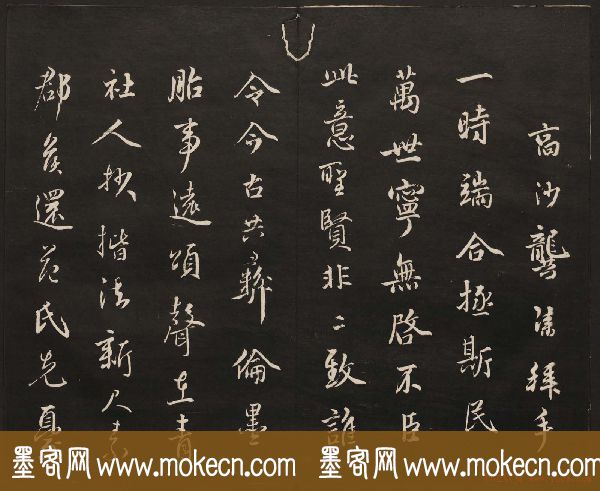 高沙龔拜手
一時端合拯斯民
萬世寧無啓不臣
此意聖賢非二致誰
令今古共彝倫墨
胎事遠頌聲在青
社人抄楷法新人
郡侯還范氏先憂
墨客网 www.mokecn.com 墨客网 www.mokecn.com